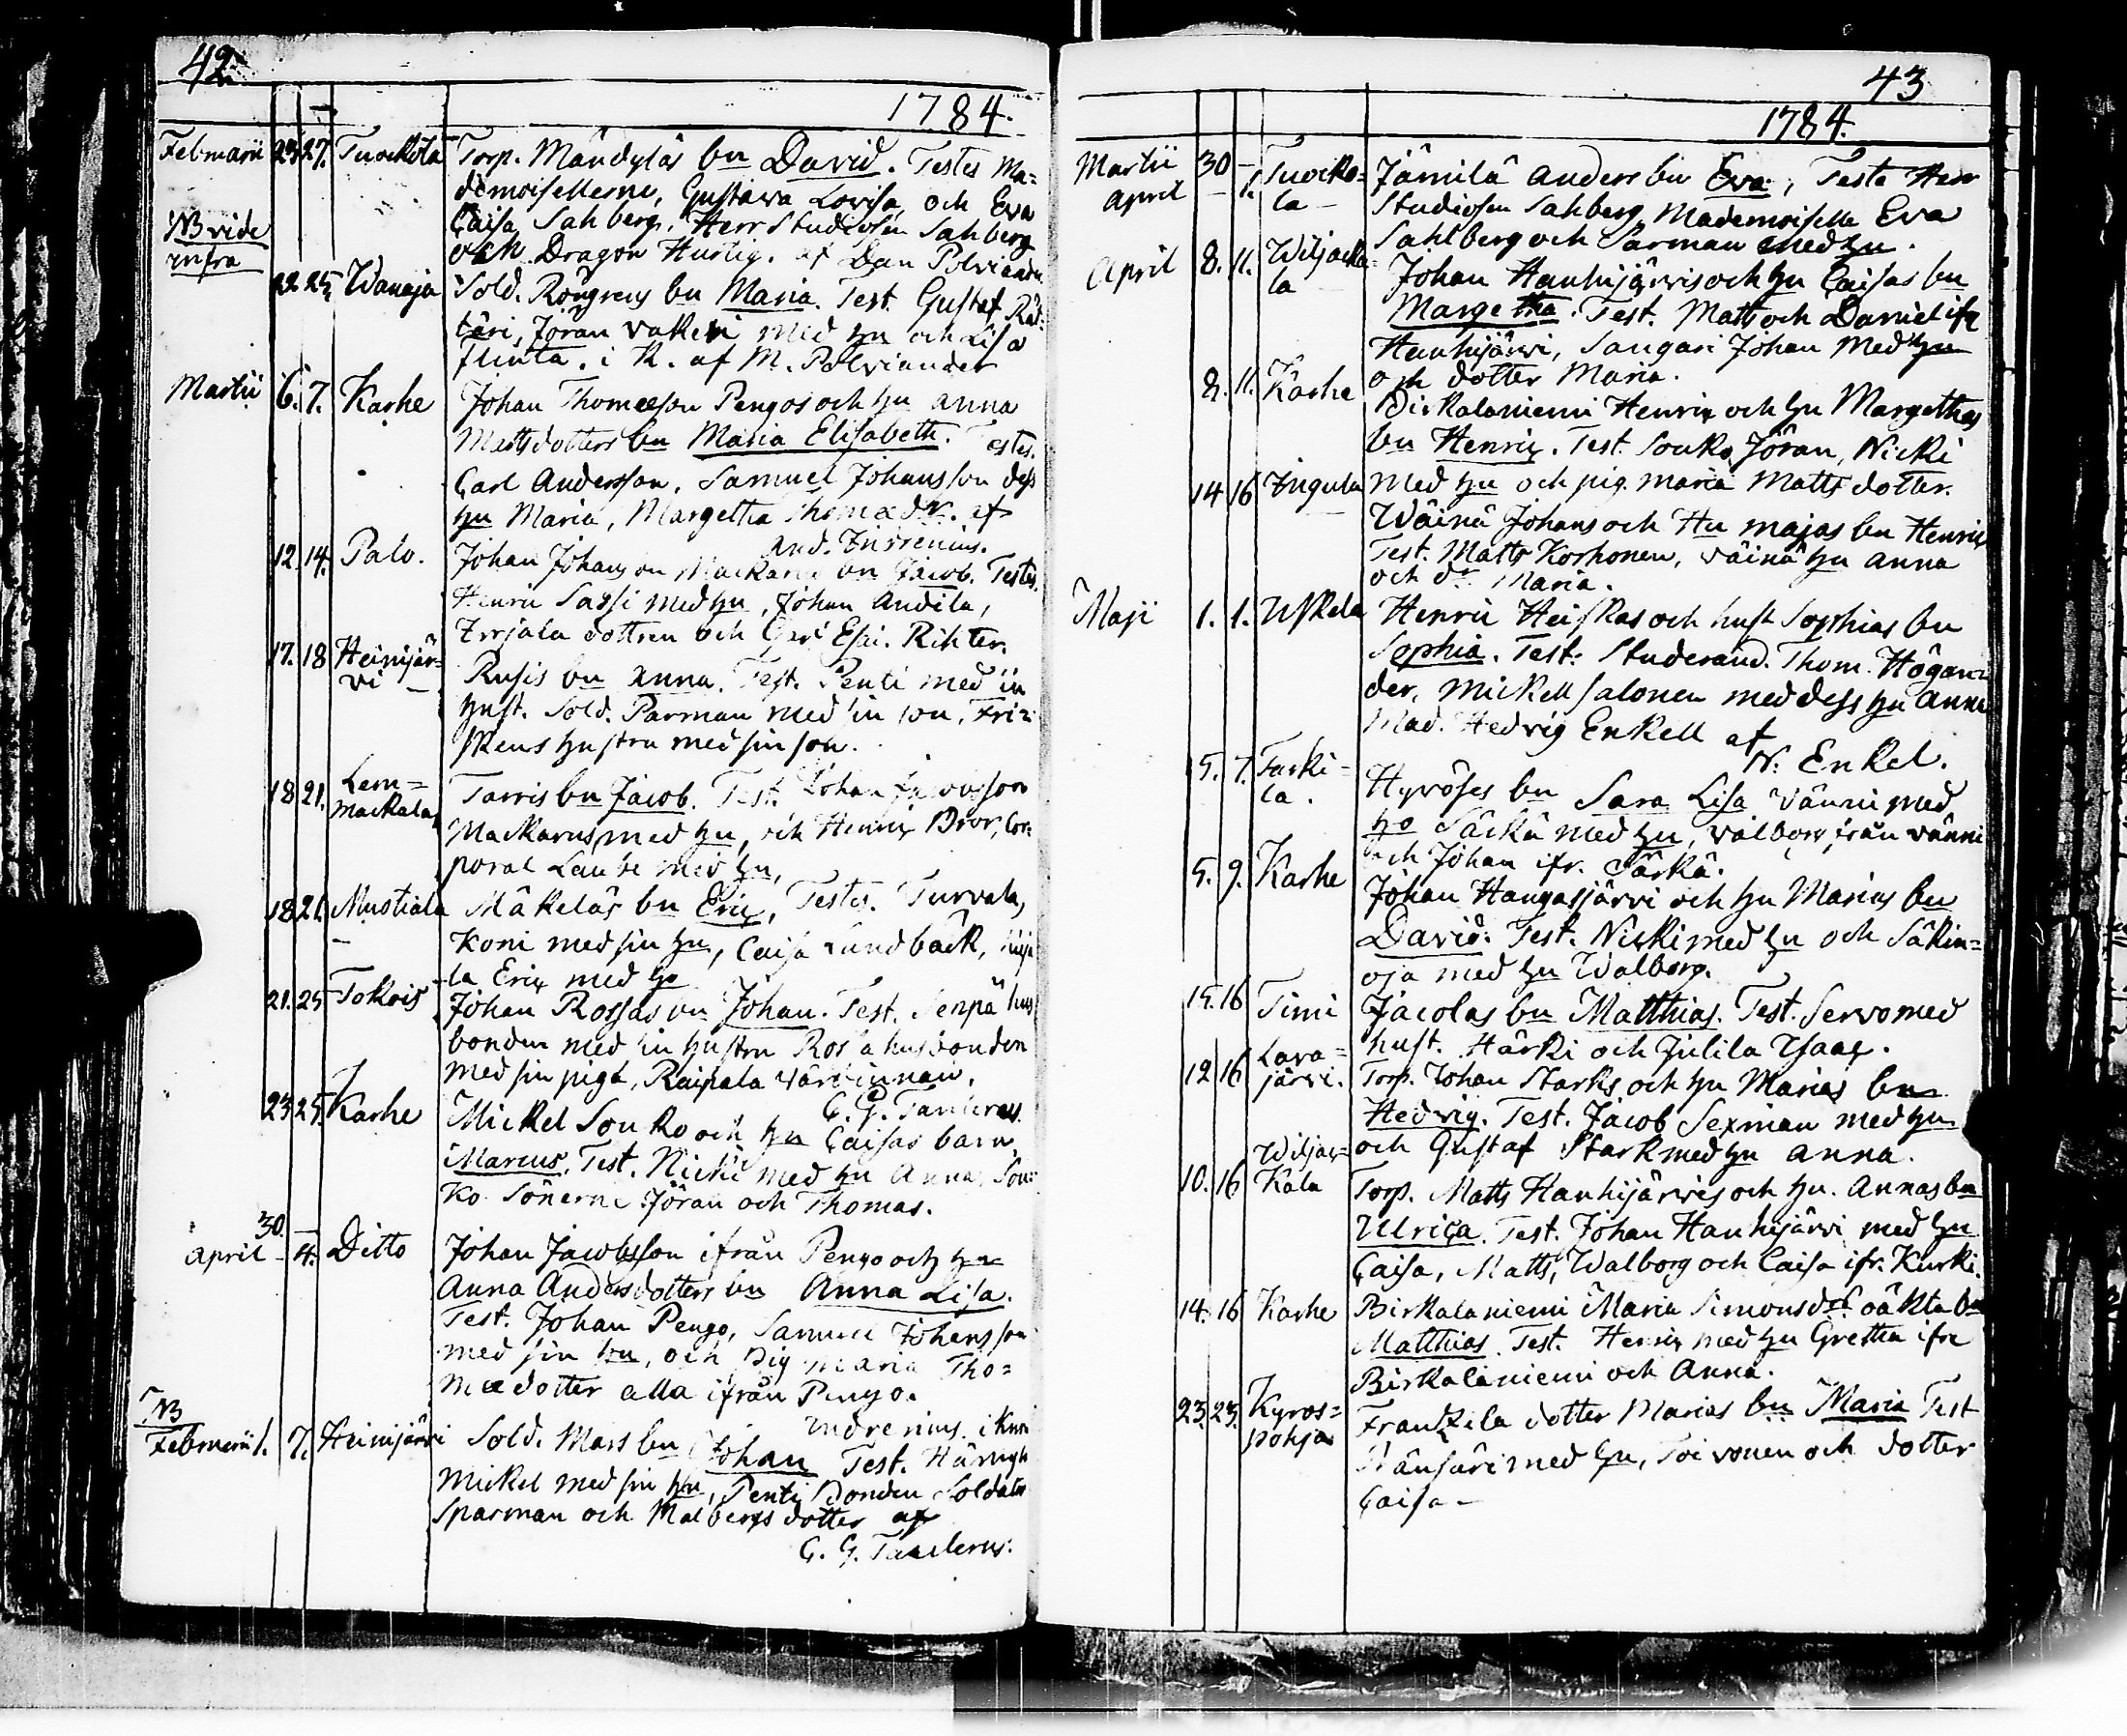 42
1784.
Februarii 23 27. Tuockola Torp. Mändyläs bn David. Testes Ma=
demoisellerne, Gustava Lovisa och Eva
NB vide Caisa Sahlberg, Herr Studiosen Sahlberg
infra och Dragon Hurtig. af Dan Polviander
22 25. Wanaja Sold. Röngrens bn Maria. Test. Gustaf Rät=
täri, Jöran Vakeri med hu och Lisa
flinta. i K. af M. Polviander
Martii 6. 7. Karhe Johan Thomæson Pengos och hu Anna
Mattsdotters bn Maria Elisabeth. Testes.
Carl Andersson, Samuel Johansson dess
hu Maria, Margetha Thomædr. af
And. Indrenius.
12. 14. Palo. Johan Johansson Mackarus bn Jacob. Testes.
Henric Sassi med hu, Johan Andila,
Irrjala dottren och Richter.
17. 18 Heinijär= Rusis bn Anna. Test. Penti med sin
vi — hust. Sold. Parman med sin son, Fri=
skens hustru med sin son.
18 21. Lem= Tarris bn Jacob. Test. Johan Jacobsson
mackala Mackarus med hu, och Henrix Bror, Cor=
poral Laube med hu,
18 21. Mustiala Mäkeläs bn Eric, Testes. Turvala,
Koni med sin hu, Caisa Lundbäck,
la Eric med hu
21. 25 Tokois Johan Rossas bn Johan. Test. Senpä hus
bonden med sin hustru Rossa husbonden
med sin piga, Raipala värdinnan.
C. G. Tanlerus.
23 25. Karhe Mickel Souko och hu Caisas barn
Marcus. Test. Nicki med hu Anna, Sou=
ko Sönerne Jöran och Thomas.
30. —
April — 4. Ditto Johan Jacobsson ifrån Pengo och hu
Anna Andersdotters bn Anna Lisa.
Test. Johan Pengo, Samuel Johansson
med sin hu, och pig Maria Tho=
mædotter alla ifrån Pengo.
Indrenius.
NB
Februarii 1. 7. Heinijärvi Sold. Mass bn Johan Test.
Mickel med sin hu, Penti Bonden Soldater
Sparman och Malbergs dotter af
G. G. Tanlerus.
43
1784.
Martii 30 — Tuocko= Jämilä Anders bn Eva, Teste Herr
April — 1. la — Studiosen Sahlberg, Mademoiselle Eva
Sahlberg och Parman med hu.
April 8. 11. Wiljacka= Johan Hanhijärvis och hu Caisas bn
la — Margetha. Test. Matts och Daniel ifr
Hanhijärvi, Saugari Johan med hu
och dotter Maria.
8. 11. Karhe Birkalaniemi Henrix och hu Margethas
bn Henrix. Test. Souko Jöran, Nicki
med hu och pig. Maria Mattsdotter.
14 16 Ingula Wäinä Johans och Hu Majas bn Henrix
Test. Matts Korhonen, Väinä hu Anna
och dr Maria.
Maji 1. 1. Uskela Henric Heiskas och hust Sophias bn
Sophia. Test: Studerand. Thom. Högan=
der, Mickell Salonen med dess hu Anna
Mad. Hedvig Enkell af
N. Enkel.
5. 7. Turki= Hyröses bn Sara Lisa Vänni med
la. hu Särkä med hu, Valborg från Vänni
och Johan ifr. Särkä.
5. 9. Karhe Johan Hangasjärvi och hu Marias bn
David. Test. Nicki med hu och Säkin=
oja med hu Walborg.
15. 16 Timi Jacolas bn Matthias. Test. Servo med
hust. Härki och Julila Isaac.
12 16 Lava= Torp. Johan Starks och hu Marias bn
järvi. Hedvig. Test. Jacob Sexman med hu
och Gustaf Stark med hu Anna.
10. 16 Wiljac= Torp. Matts Hanhijärvis och hu. Annas bn
kala Ulrica. Test. Johan Hanhijärvi med hu
Caisa, Matts, Walborg och Caisa ifr. Kurki.
14. 16 Karhe Birkalaniemi Maria Simonsdrs oäkta bn
Matthias. Test. Henrix med hu Gretha ifr
Birkalaniemi och Anna.
23. 23. Kyros= Frantzila dotter Marias bn Maria Test
pohja Wänsäri med hu, Toivonen och dotter
Caisa —